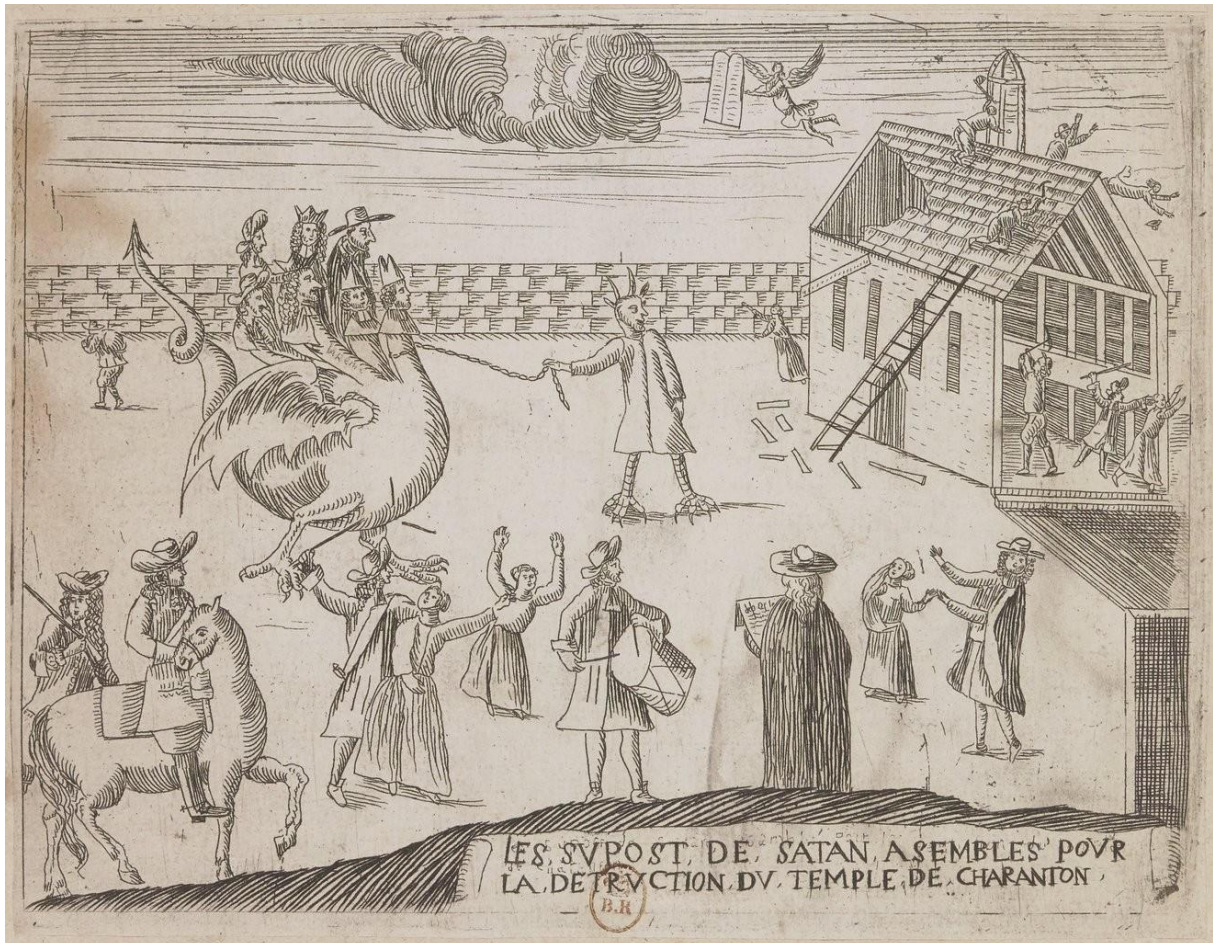 LES SVPOST, DE, SATAN, ASEMBLES POVR
LA, DETRVCTION, DV, TEMPLE, DE, CHARANTON,
B.R